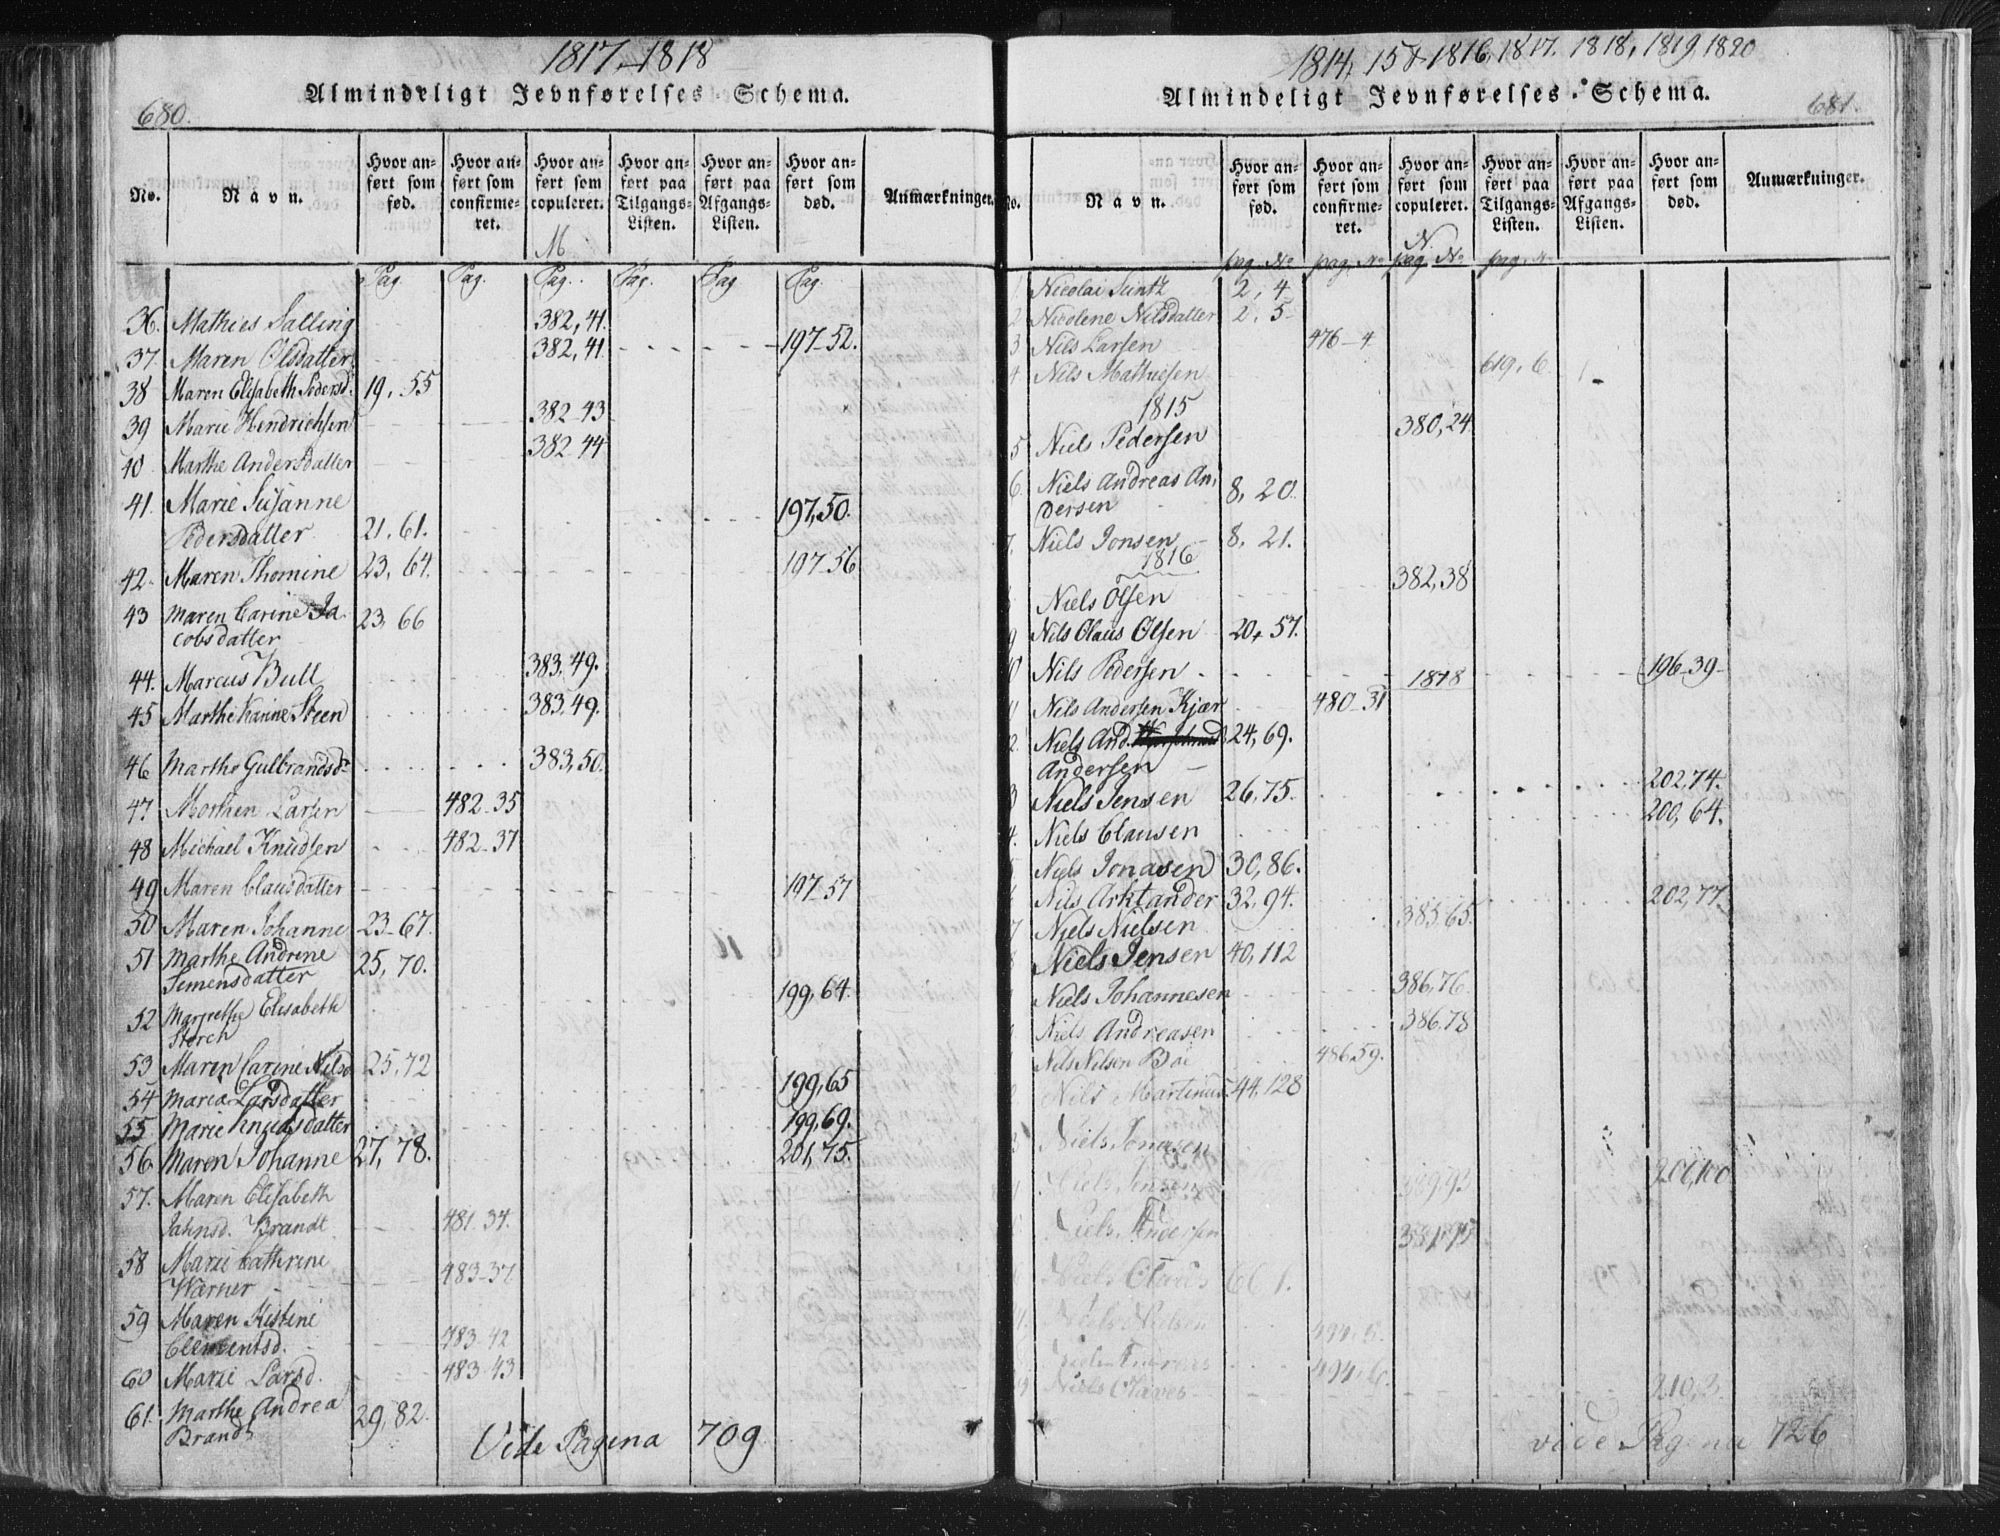 1817,-1818
Almindeligt Jevnførelses-Schema.
680.
No.
Navn.
Hvor anført som fød.
Hvor anført som confirmeret.
Hvor anført som copuleret.
Hvor anført paa Tilgangs-Listen.
Hvor anført paa Afgangs-Listen.
Hvor anført som død.
Anmærkninger.
M
Pag. Pag. Pag. Pag. Pag Pag.
36. Mathies Salling 382,41.
37. Maren Olsdatter 382,41 197-52.
38 Maren Elisabeth Pedersd. 19,55
39 Marie Hendrichsen 382 43
40 Marthe Andersdatter 382 44
41. Marie Susanne
Pedersdatter 21,61. 197,50.
42. Maren Thomine 23,64. 197-56
43 Maren Carine Ja
cobsdatter 23,66
44. Marcus Bull 383,49.
45 Marthe Karine Steen 383,49.
46 Marthe Gulbrandsdr 383,50.
47 Morthen Larsen 482-35
48 Michael Knudsen 482-37
49 Maren Clausdatter 197-57
50 Maren Johanne 23-67.
51 Marthe Andrine
Simensdatter 25,70.
52 Margrethe Elisabeth
Storch 199,64.
53 Maren Carine Nilsd 25,72
54 Maria Larsdatter 199,65
55 Marie Knudsdatter 199,69.
56 Maren Johanne 27,78. 201,75.
57. Maren Elisabeth
Jahnsd. Brandt 481.34.
58 Marie Cathrine
Warner 483-37
59 Maren Kistine
Clementsd. 483-42
60 Marie Larsd. 483-43
61. Marthe Andrea
Brandt 29,82.
Vide Pagena 709
1814, 15 & 1816, 1817. 1818, 1819, 1820
Almindeligt Jevnførelses-Schema.
681.
No.
Navn.
Hvor anført som fød.
Hvor anført som confirmeret.
Hvor anført som copuleret.
Hvor anført paa Tilgangs-Listen.
Hvor anført paa Afgangs-Listen.
Hvor anført som død.
Anmærkninger.
N.
pag. No pag. No pag. No pag. N
1 Nicolai 2,4
2 Nicolene Nilsdatter 2,5
3 Nils Larsen 476-4
4. Nils Mathiesen 619,6
1815
5 Niels Pedersen 380,24
6. Niels Andreas An
dersen 8,20.
7. Niels Jonsen 8,21.
1816
Niels Olsen 382,38
9 Nils Claus Olsen 20,57.
10 Nils Pedersen 196-39
1818
Nils Andersen Kjær 480-31
2. Niels And.
Andersen 24,69.
3 Niels Jensen 26,75. 202,74.
4. Niels Clausen 200,64.
Niels Jonasen 30,86.
Nils Arktander 32,94. 202,77
7 Niels Nielsen 385,65.
8 Niels Jensen 40,112
Niels Johannesen 386,76.
Niels Andreasen 386,78
Nils Nilsen Boe 486,59.
Nils Martinus 44,128
3 Niels Jonasen
Niels Jensen
Niels Andersen
Niels
Niels Nielsen
494,6.
Niels Olaves 210,3.
vide Pagena 726